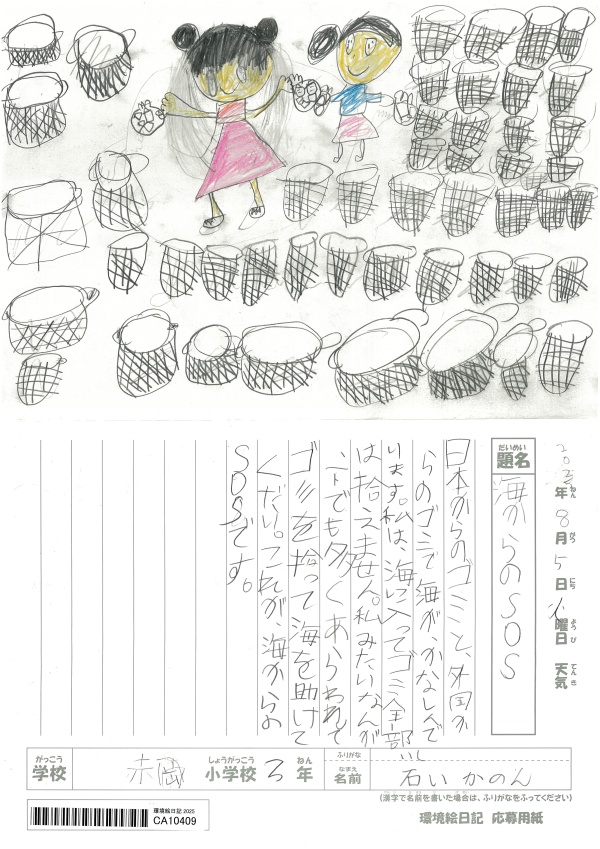 題名 だいめい
海からのSOS
年 ねん 8 月 がつ 5 日 にち 火 曜日 ようび 天気 てんき
日本からのゴミと、外国か
らのゴミで海が、かなしんで
います。私は、海に入ってゴミ全部
は拾えません。私みたいなんが
でも多くあらわれて
ゴミを拾って海を助けて
ください。これが、海からの
SOSです。
がっこう 学校 赤岡 しょうがっこう 小学校 3 ねん 年
ふりがな
なまえ 名前 石い かのん
(漢字で名前を書いた場合は、ふりがなをふってください)
環境絵日記 2025
CA10409
環境絵日記 応募用紙